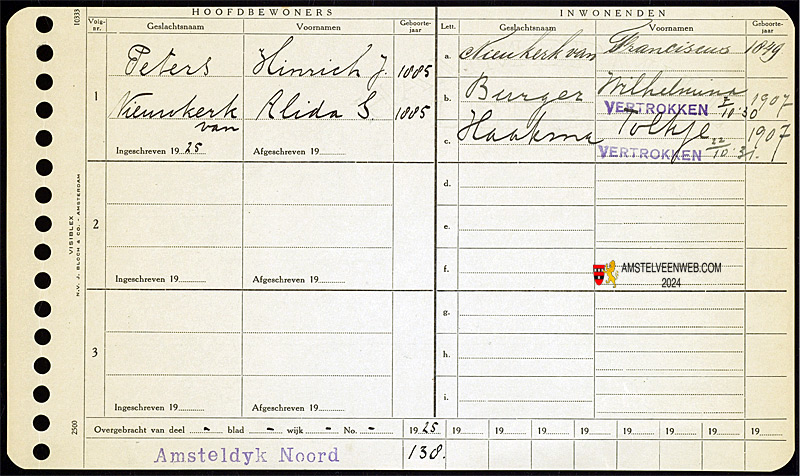 HOOFDBEWONERS
Volg-nr. Geslachtsnaam Voornamen Geboorte-jaar
1
Peters Hinrich J. 1885
Nieuwkerk van Alida S. 1885
Ingeschreven 1925 Afgeschreven 19
2
Ingeschreven 19 Afgeschreven 19
3
Ingeschreven 19 Afgeschreven 19
INWONENDEN
Lett. Geslachtsnaam Voornamen Geboorte-jaar
a. Nieukerk van Franciscus 1849
b. Burger Wilhelmina 1907
VERTROKKEN 2/10-30
c. Haakma Tolkje 1907
VERTROKKEN 22/10-31.
d.
e.
f.
g.
h.
i.
AMSTELVEENWEB.COM
2024
Overgebracht van deel - blad - wijk - No. - 1925. 19 19 19 19 19 19 19 19
Amsteldyk Noord 138.
10333
VISIBLEX
N.V. J. BLOCH & CO. - AMSTERDAM
2500